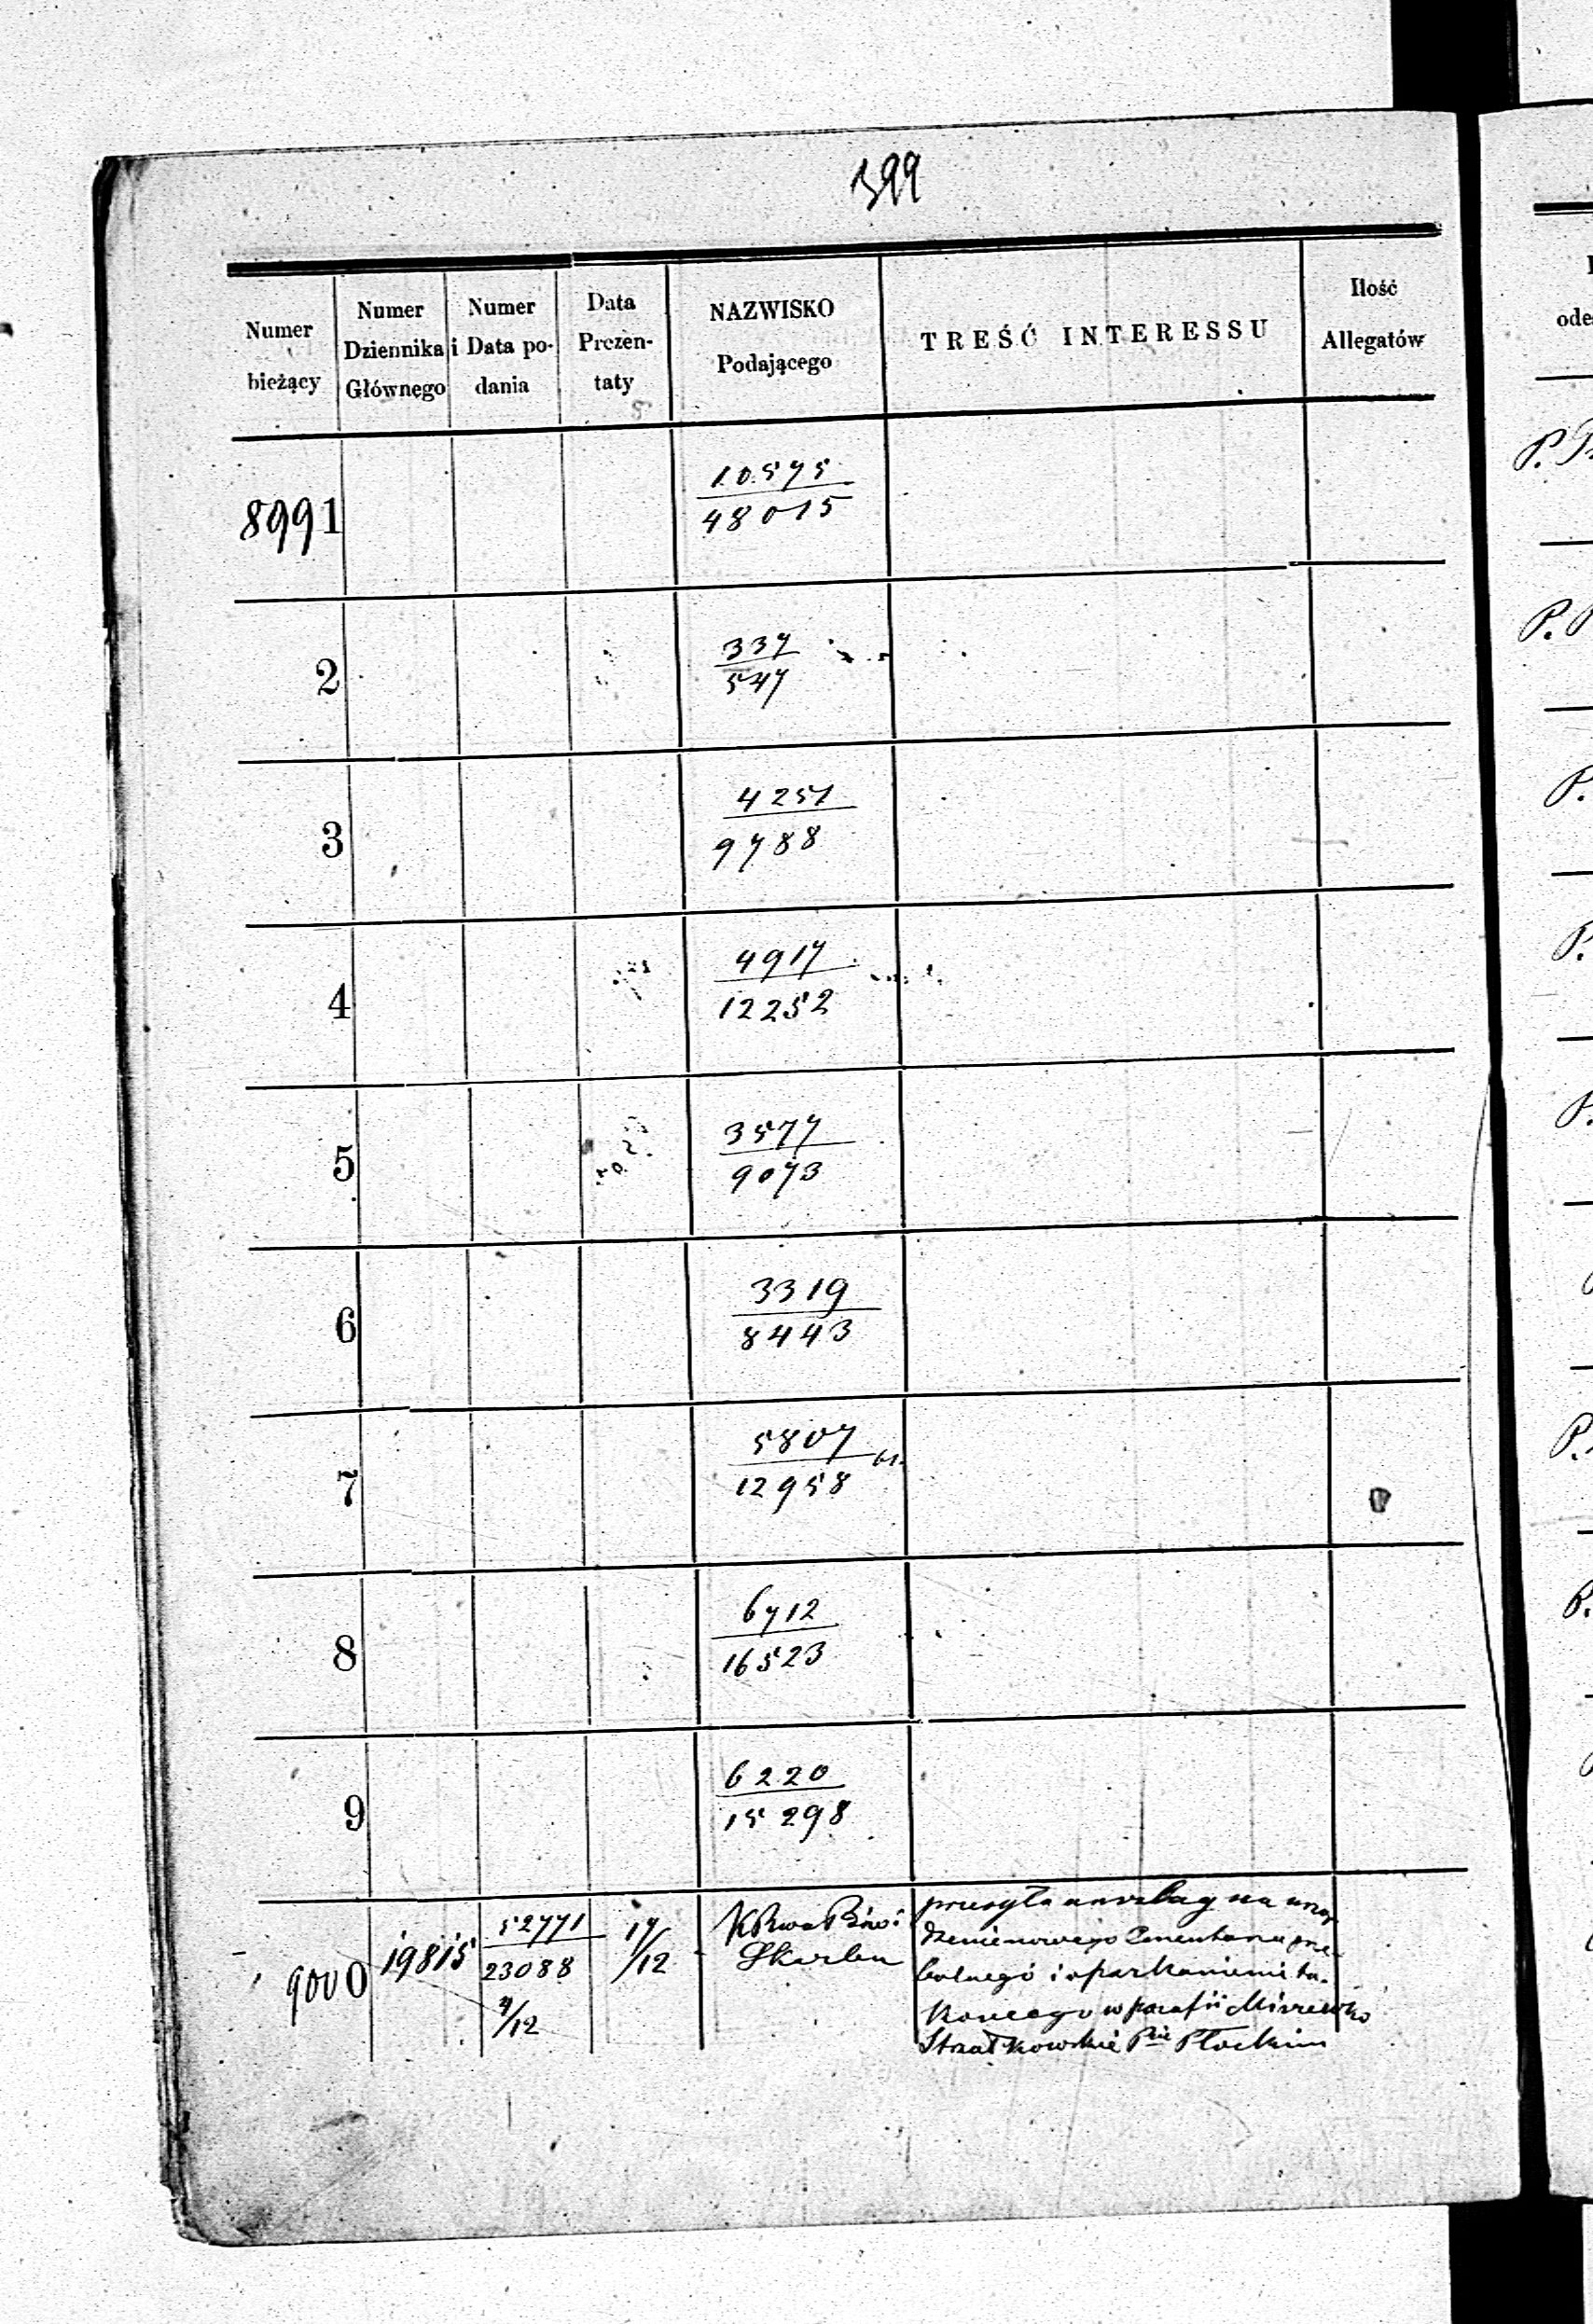 399
Numer bieżący
Numer Dziennika Głównego
Numer i Data podania
Data Prezentaty
NAZWISKO Podającego
TREŚĆ INTERESSU
Ilość Allegatów
8991
10575
48015
2
337
547
3
4251
9788
4
4917
12252
5
3577
9073
6
3319
8443
7
5807
12958
8
6712
16523
9
6220
15298
9000
19815
52771
23088
4/12
17/12
Skarbu
przesyła anszlag na urzą
dzenie nowego Cmentarza grze-
balnego i oparkanieni ta-
kowego w parafii Miszewko
Strzałkowskie Pcie Płockim
P.
P.
P.
P.
P.
P.
P.